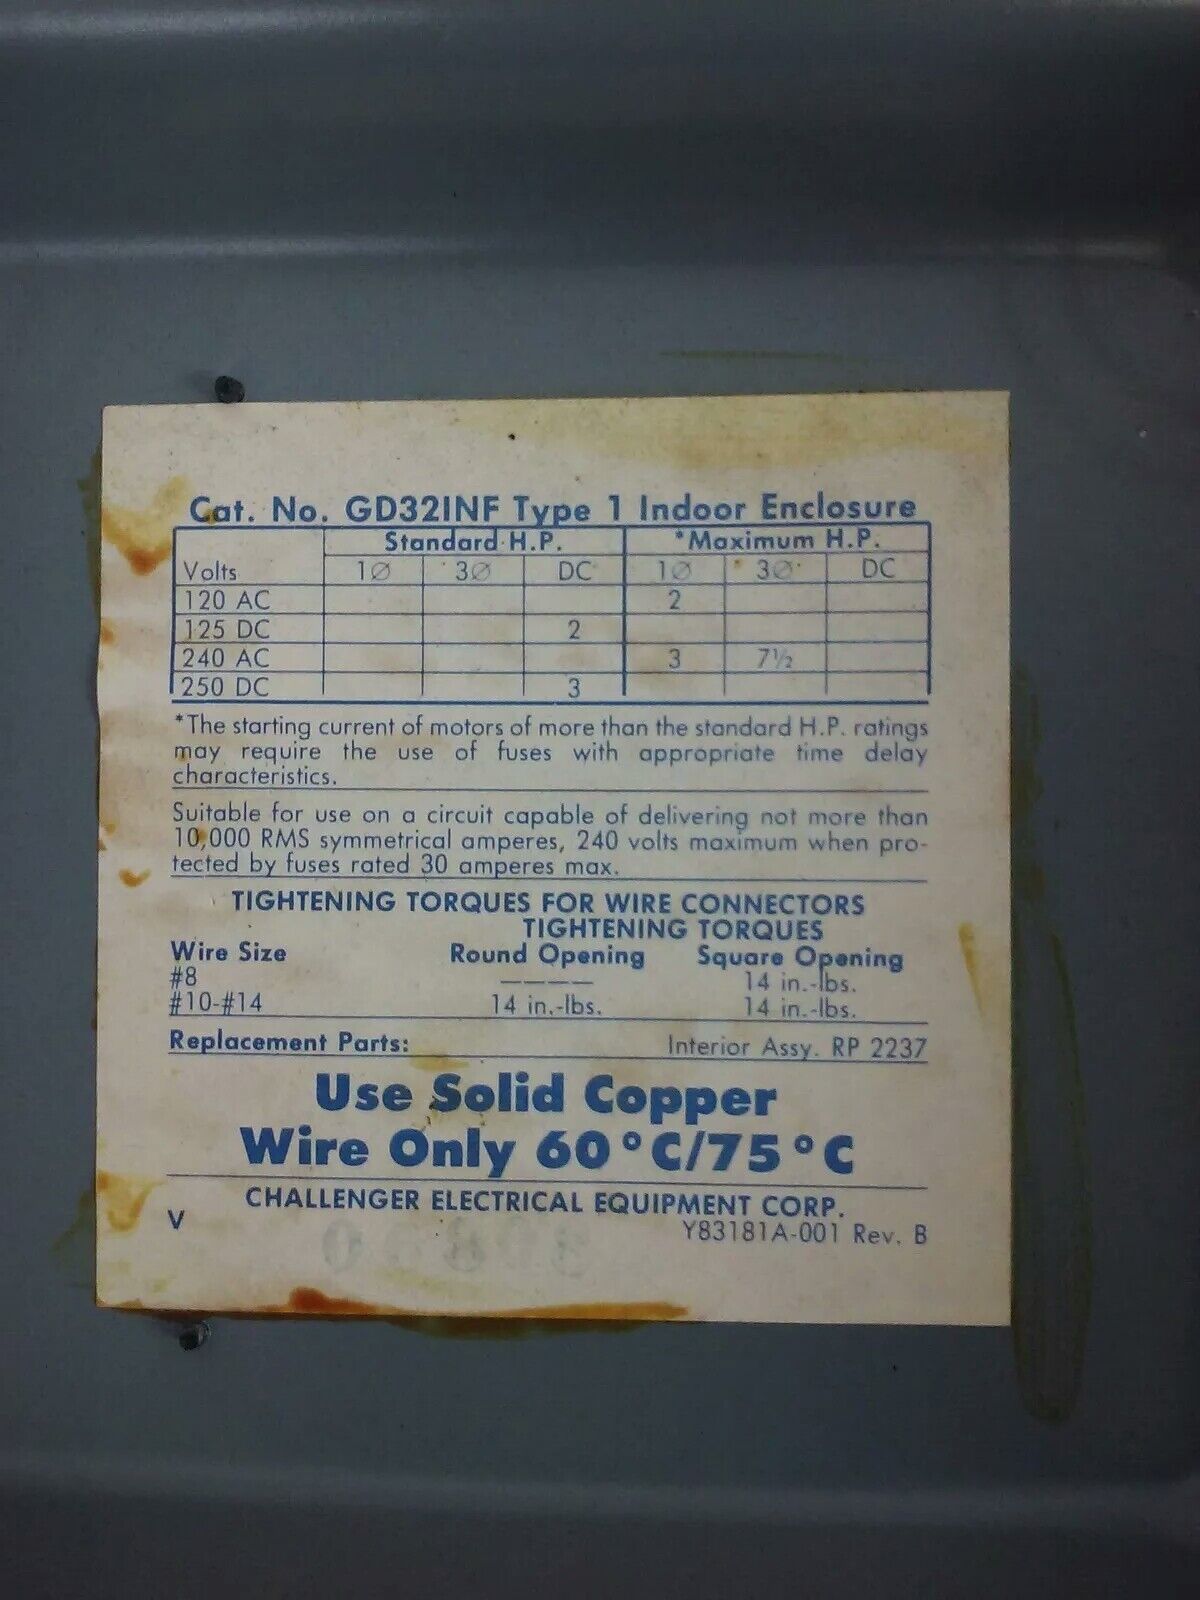 Cat. No. GD321NF Type 1 Indoor Enclosure
Standard H.P. *Maximum H.P.
Volts 1Ø 3Ø DC 1Ø 3Ø DC
120 AC 2
125 DC 2
240 AC 3 7½
250 DC 3
*The starting current of motors of more than the standard H.P. ratings
may require the use of fuses with appropriate time delay
characteristics.
Suitable for use on a circuit capable of delivering not more than
10,000 RMS symmetrical amperes, 240 volts maximum when pro-
tected by fuses rated 30 amperes max.
TIGHTENING TORQUES FOR WIRE CONNECTORS
TIGHTENING TORQUES
Wire Size Round Opening Square Opening
#8 ———— 14 in.-lbs.
#10-#14 14 in.-lbs. 14 in.-lbs.
Replacement Parts: Interior Assy. RP 2237
Use Solid Copper
Wire Only 60°C/75°C
CHALLENGER ELECTRICAL EQUIPMENT CORP.
V Y83181A-001 Rev. B